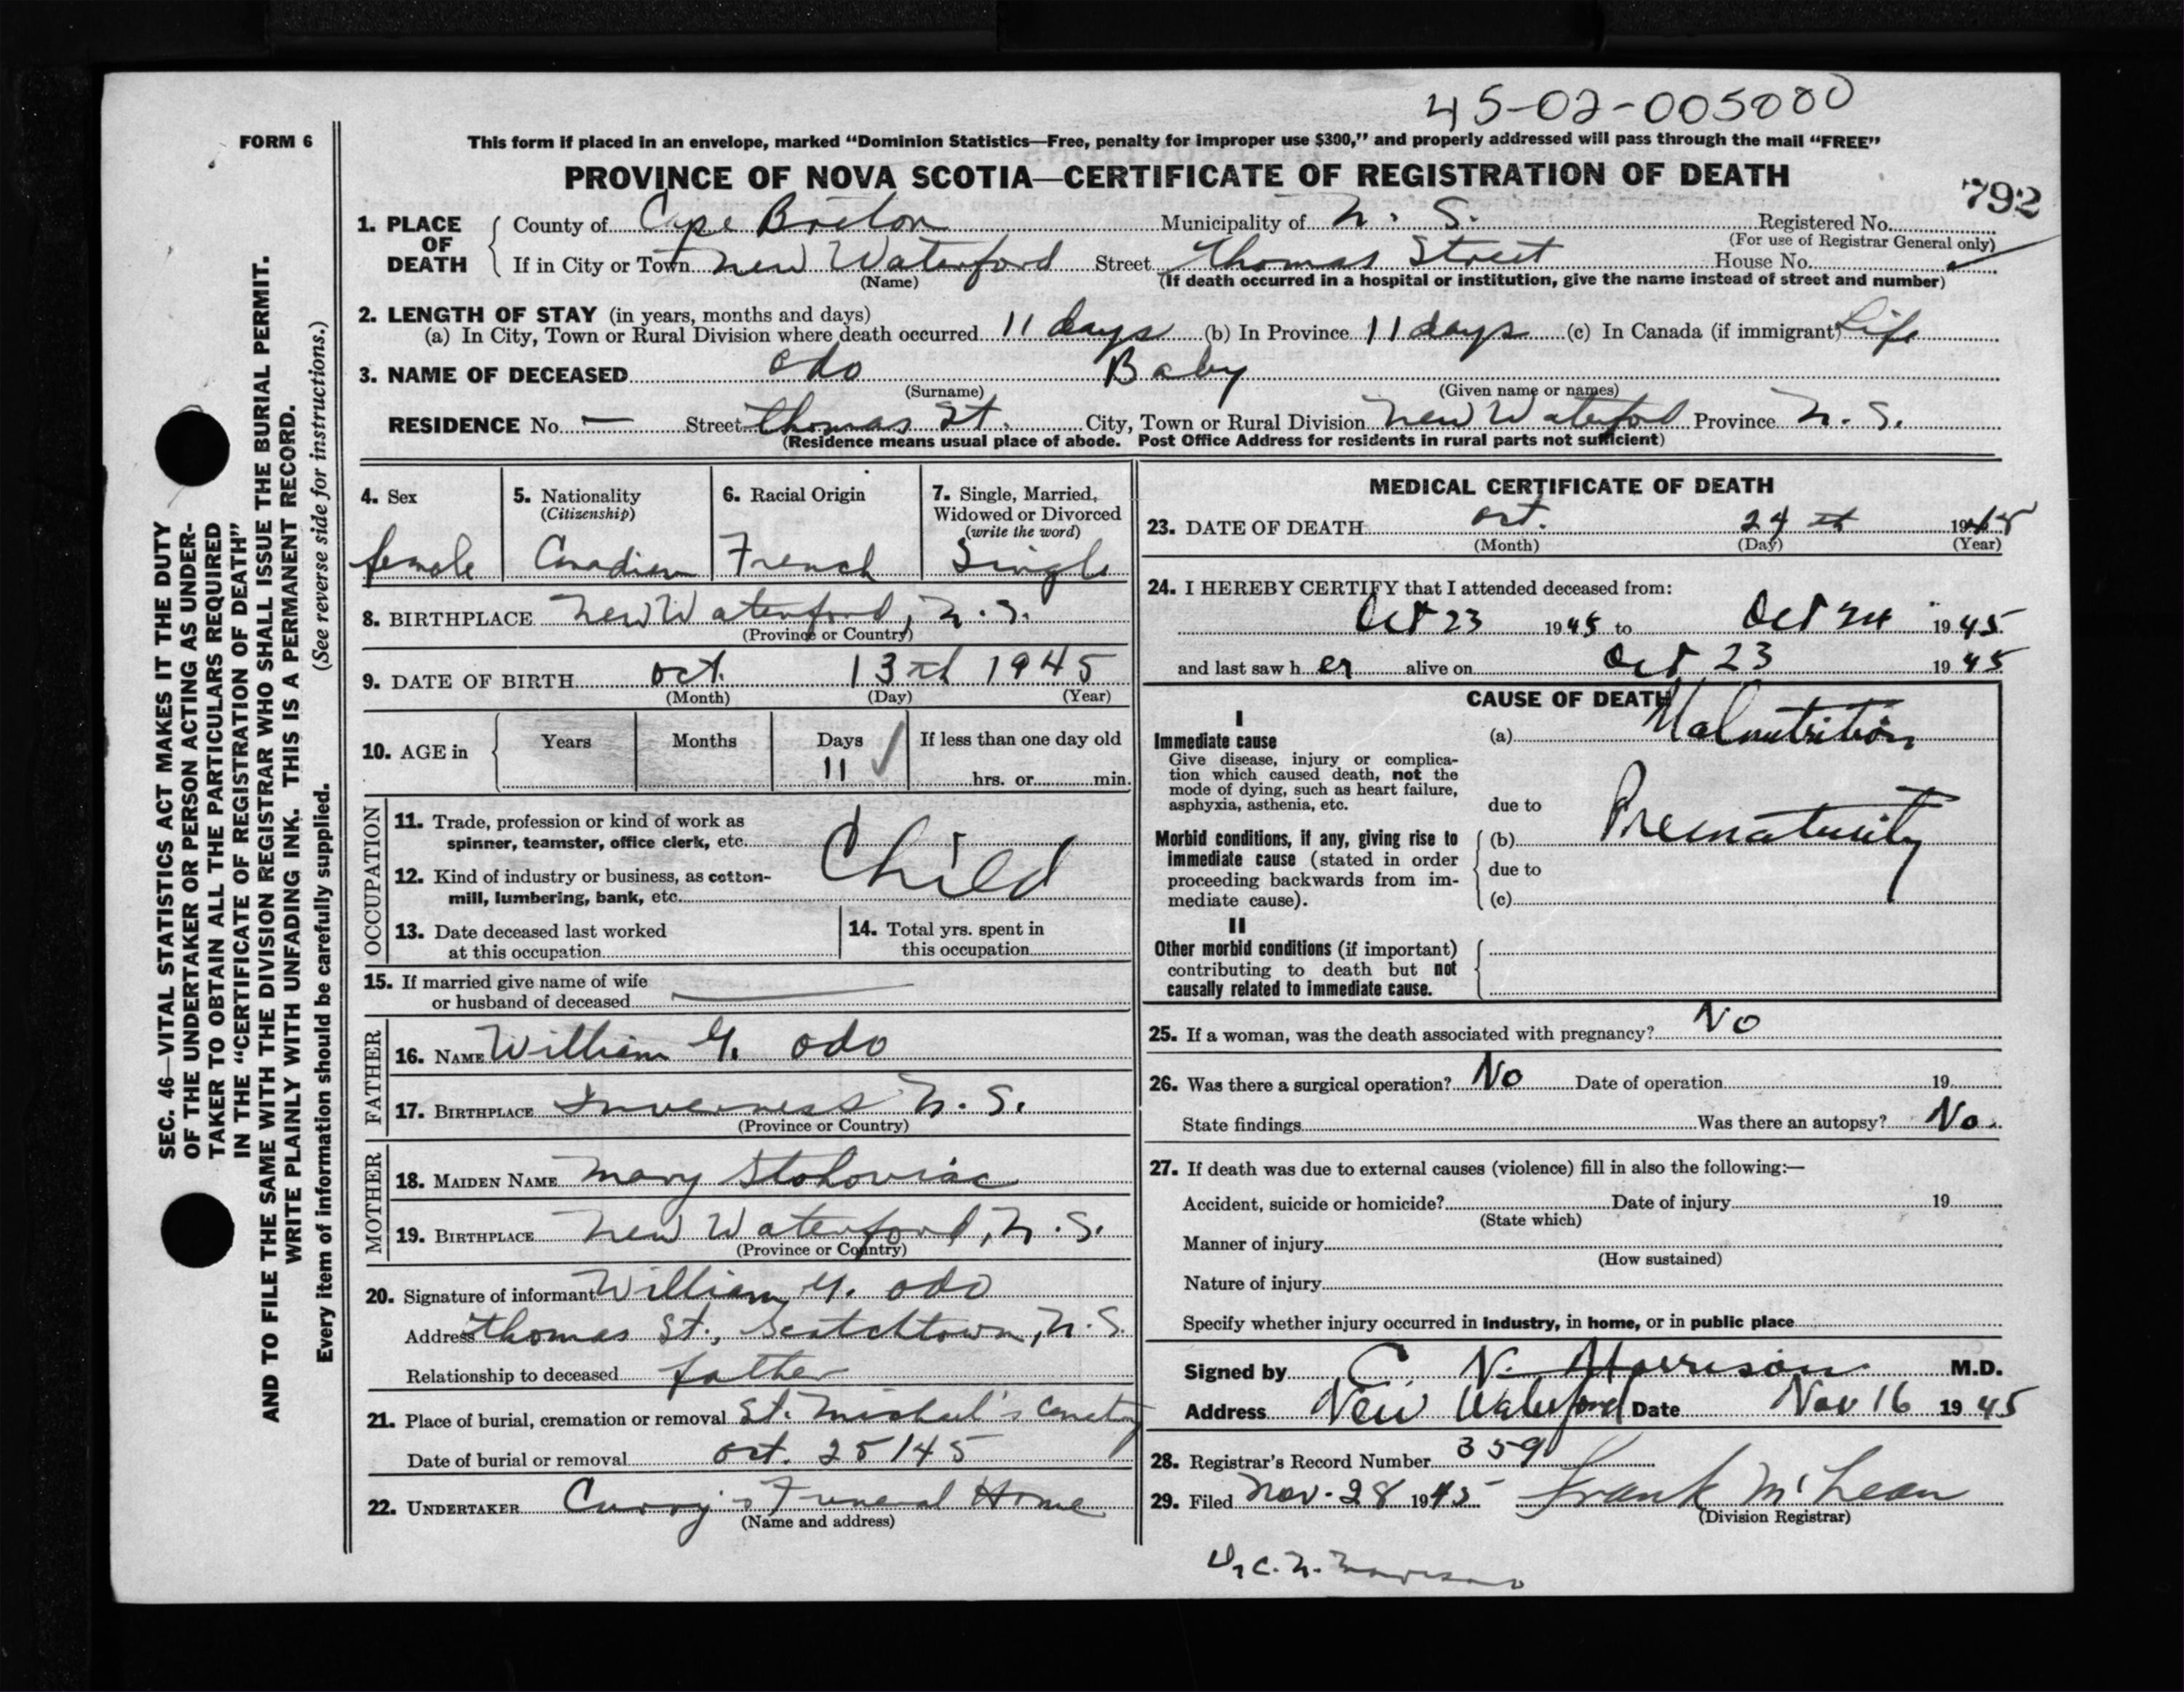 45-02-005000
FORM 6
This form if placed in an envelope, marked "Dominion Statistics—Free, penalty for improper use $300," and properly addressed will pass through the mail "FREE"
PROVINCE OF NOVA SCOTIA—CERTIFICATE OF REGISTRATION OF DEATH
792
1. PLACE OF DEATH
County of Cape Breton Municipality of N. S. Registered No.
(For use of Registrar General only)
If in City or Town New Waterford Street Thomas Street House No.
(Name) (If death occurred in a hospital or institution, give the name instead of street and number)
2. LENGTH OF STAY (in years, months and days)
(a) In City, Town or Rural Division where death occurred 11 days (b) In Province 11 days (c) In Canada (if immigrant) Life
3. NAME OF DECEASED Odo Baby
(Surname) (Given name or names)
RESIDENCE No. — Street Thomas St. City, Town or Rural Division New Waterford Province N. S.
(Residence means usual place of abode. Post Office Address for residents in rural parts not sufficient)
4. Sex
female
5. Nationality
(Citizenship)
Canadian
6. Racial Origin
French
7. Single, Married,
Widowed or Divorced
(write the word)
Single
8. BIRTHPLACE New Waterford, N. S.
(Province or Country)
9. DATE OF BIRTH Oct. 13th 1945
(Month) (Day) (Year)
10. AGE in
Years Months Days If less than one day old
11 hrs. or min.
OCCUPATION
11. Trade, profession or kind of work as
spinner, teamster, office clerk, etc.
Child
12. Kind of industry or business, as cotton-
mill, lumbering, bank, etc.
13. Date deceased last worked
at this occupation
14. Total yrs. spent in
this occupation
15. If married give name of wife
or husband of deceased —
FATHER
16. NAME William G. Odo
17. BIRTHPLACE Inverness N. S.
(Province or Country)
MOTHER
18. MAIDEN NAME Mary
19. BIRTHPLACE New Waterford, N. S.
(Province or Country)
20. Signature of informant William G. Odo
Address Thomas St., Scotchtown, N. S.
Relationship to deceased father
21. Place of burial, cremation or removal St. Michael's Cemetery
Date of burial or removal Oct. 25/45
22. UNDERTAKER Curry's Funeral Home
(Name and address)
MEDICAL CERTIFICATE OF DEATH
23. DATE OF DEATH Oct. 24th 1945
(Month) (Day) (Year)
24. I HEREBY CERTIFY that I attended deceased from:
Oct 23 1945 to Oct 24 1945
and last saw her alive on Oct 23 1945
CAUSE OF DEATH
I
Immediate cause
Give disease, injury or complica-
tion which caused death, not the
mode of dying, such as heart failure,
asphyxia, asthenia, etc.
(a) Malnutrition
due to
Morbid conditions, if any, giving rise to
immediate cause (stated in order
proceeding backwards from im-
mediate cause).
(b) Prematurity
due to
(c)
II
Other morbid conditions (if important)
contributing to death but not
causally related to immediate cause.
25. If a woman, was the death associated with pregnancy? No
26. Was there a surgical operation? No Date of operation 19
State findings Was there an autopsy? No.
27. If death was due to external causes (violence) fill in also the following:—
Accident, suicide or homicide? Date of injury 19
(State which)
Manner of injury
(How sustained)
Nature of injury
Specify whether injury occurred in industry, in home, or in public place
Signed by C. N. Morrison M.D.
Address New Waterford Date Nov 16 1945
28. Registrar's Record Number 359
29. Filed Nov. 28 1945 Frank McLean
(Division Registrar)
Dr C. N. Morrison
SEC. 46—VITAL STATISTICS ACT MAKES IT THE DUTY
OF THE UNDERTAKER OR PERSON ACTING AS UNDER-
TAKER TO OBTAIN ALL THE PARTICULARS REQUIRED
IN THE "CERTIFICATE OF REGISTRATION OF DEATH"
AND TO FILE THE SAME WITH THE DIVISION REGISTRAR WHO SHALL ISSUE THE BURIAL PERMIT.
WRITE PLAINLY WITH UNFADING INK. THIS IS A PERMANENT RECORD.
Every item of information should be carefully supplied. (See reverse side for instructions.)